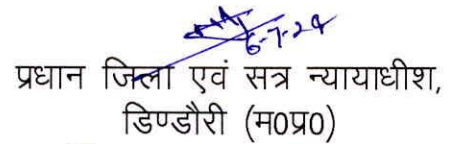 6-7-24
प्रधान जिला एवं सत्र न्यायाधीश,
डिण्डौरी (म0प्र0)